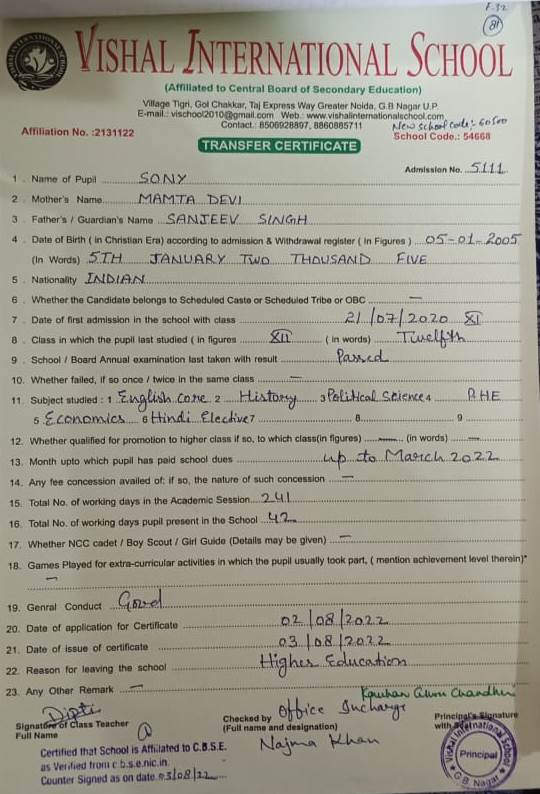 F-32
81
VISHAL INTERNATIONAL SCHOOL
(Affiliated to Central Board of Secondary Education)
Village Tigri, Gol Chakkar, Taj Express Way Greater Noida, G.B Nagar U.P.
E-mail.: vischool2010@gmail.com Web.: www.vishalinternationalschool.com
Contact.: 8506928897, 8860885711
New School Code:- 60500
Affiliation No. :2131122
School Code.: 54668
TRANSFER CERTIFICATE
Admission No. 5111
1 . Name of Pupil SONY
2 . Mother's Name MAMTA DEVI
3 . Father's / Guardian's Name SANJEEV SINGH
4 . Date of Birth ( in Christian Era) according to admission & Withdrawal register ( in Figures ) 05-01-2005
(In Words) 5TH JANUARY TWO THOUSAND FIVE
5 . Nationality INDIAN
6 . Whether the Candidate belongs to Scheduled Caste or Scheduled Tribe or OBC —
7 . Date of first admission in the school with class 21/07/2020 XI
8 . Class in which the pupil last studied ( in figures XII ( in words) Twelfth
9 . School / Board Annual examination last taken with result Passed
10. Whether failed, if so once / twice in the same class —
11. Subject studied : 1 English Core 2 History 3 Political Science 4 PHE
5 Economics 6 Hindi Elective 7 8 9
12. Whether qualified for promotion to higher class if so, to which class(in figures) — (in words) —
13. Month upto which pupil has paid school dues up to March 2022
14. Any fee concession availed of: if so, the nature of such concession —
15. Total No. of working days in the Academic Session 241
16. Total No. of working days pupil present in the School 42
17. Whether NCC cadet / Boy Scout / Girl Guide (Details may be given) —
18. Games Played for extra-curricular activities in which the pupil usually took part, ( mention achievement level therein)*
—
19. Genral Conduct Good
20. Date of application for Certificate 02/08/2022
21. Date of issue of certificate 03/08/2022
22. Reason for leaving the school Higher Education
23. Any Other Remark —
Dipti
Signature of Class Teacher
Full Name
Checked by Office Incharge
(Full name and designation)
Najma Khan
Principal's Signature
with
Vishal International School
Principal
G.B. Nagar
Certified that School is Affiliated to C.B.S.E.
as Verified from c b.s.e.nic.in.
Counter Signed as on date 03/08/22